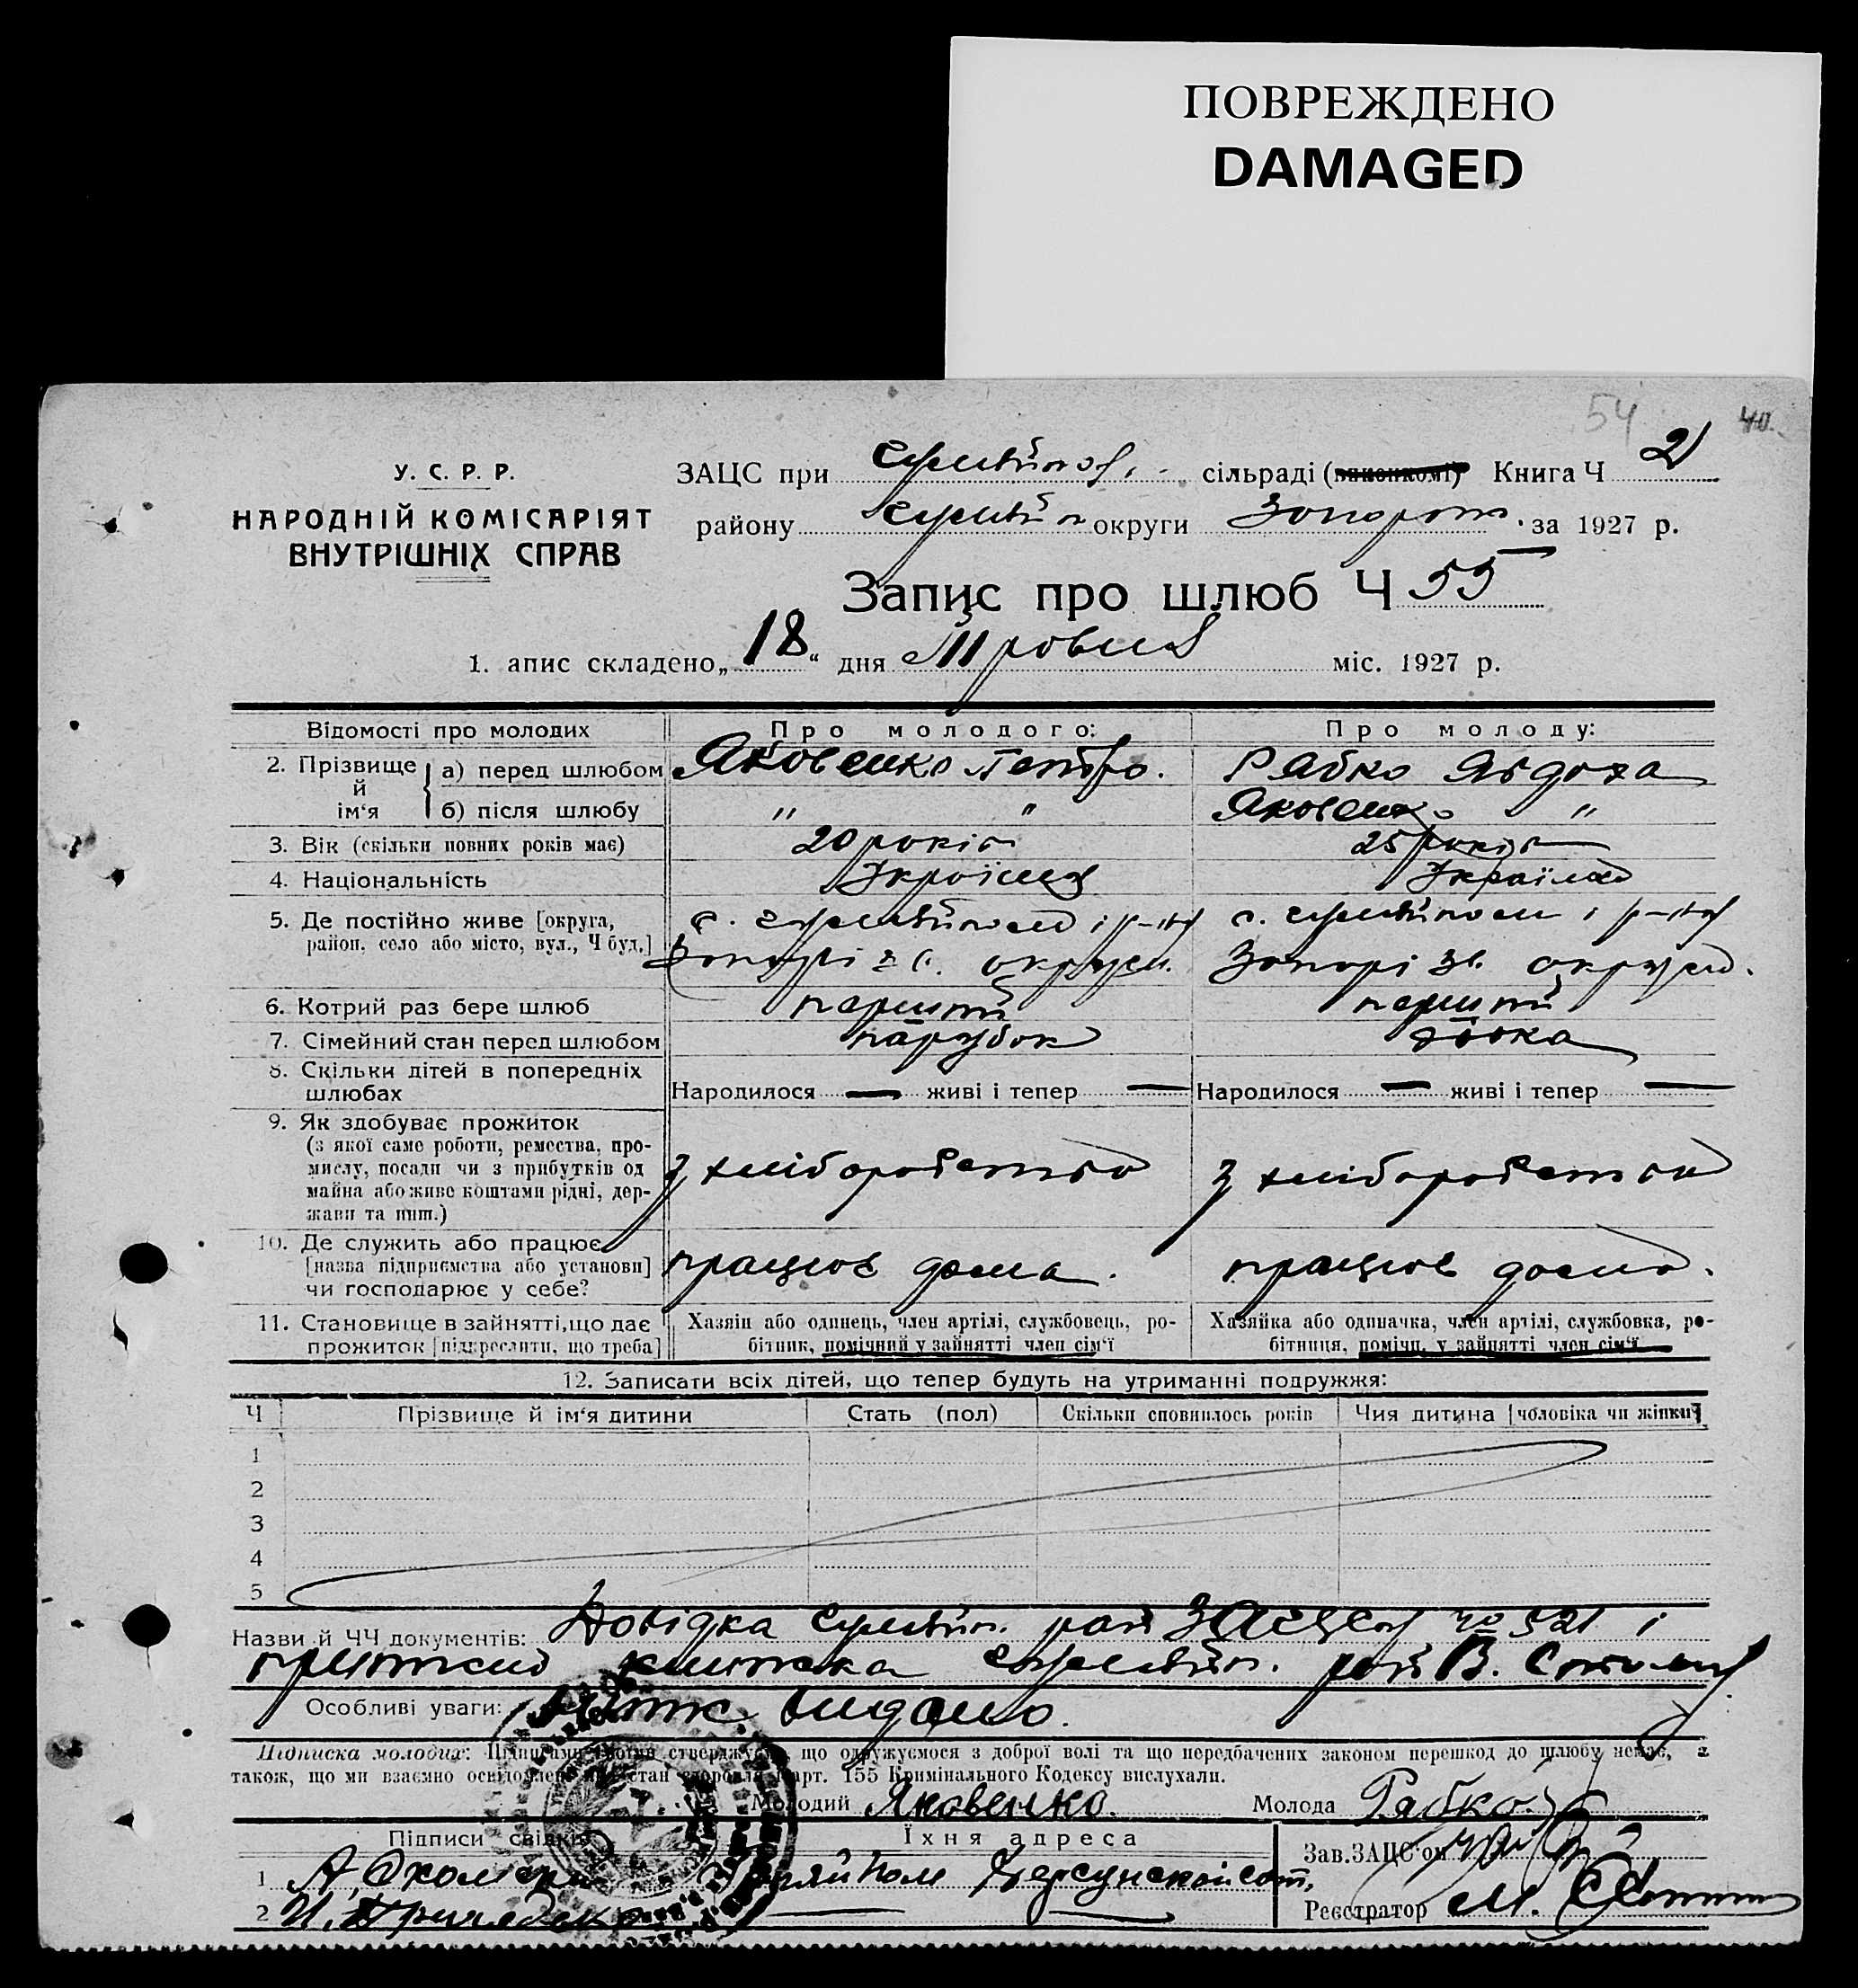 ПОВРЕЖДЕНО
DAMAGED
54 40.
У. С. Р. Р.
НАРОДНІЙ КОМІСАРІЯТ
ВНУТРІШНІХ СПРАВ
ЗАЦС при сільраді (виконкомі) Книга Ч 2
району округи Запоріж. за 1927 р.
Запис про шлюб Ч 55
1. апис складено „18“ дня Травня міс. 1927 р.
Відомості про молодих Про молодого: Про молоду:
2. Прізвище й ім‘я а) перед шлюбом Яковенко Петро. Рябко Явдоха
б) після шлюбу " " Яковенко "
3. Вік (скільки повних років має) 20 років 25 років
4. Національність Українец Українка
5. Де постійно живе [округа, район. село або місто, вул., Ч буд.] с. і р-ну с. і р-ну
Запоріз. округи. Запорізь. округи.
6. Котрий раз бере шлюб перший перший
7. Сімейний стан перед шлюбом парубок дівка
8. Скільки дітей в попередніх шлюбах Народилося — живі і тепер — Народилося — живі і тепер —
9. Як здобуває прожиток
(з якої саме роботи, ремества, про-
мислу, посади чи з прибутків од
майна або живе коштами рідні, дер-
жави та инш.)
з хліборобства з хліборобства
10. Де служить або працює
[назва підприємства або установи]
чи господарює у себе?
працює дома. працює дома.
11. Становище в зайнятті, що дає
прожиток [підкреслити, що треба]
Хазяін або одинець, член артілі, службовець, ро-
бітник, помічний у зайнятті член сім‘ї
Хазяйка або одиначка, член артілі, службовка, ро-
бітниця, помічн. у зайнятті член сім‘ї
12. Записати всіх дітей, що тепер будуть на утриманні подружжя:
Ч Прізвище й ім‘я дитини Стать (пол) Скільки сповнилось років Чия дитина [чоловіка чи жінки]
1
2
3
4
5
Назви й ЧЧ документів: Довідка рай ЗАЦСу № 521 і
книжка рай В. Столу
Особливі уваги: видано.
Підписка молодих: Підписами своїми стверджуємо, що одружуємося з доброї волі та що передбачених законом перешкод до шлюбу немає, а
також, що ми взаємно освідомлені про стан здоровля. Карт. 155 Кримінального Кодексу вислухали.
Молодий Яковенко. Молода Рябко.
Підписи свідків Їхня адреса Зав. ЗАЦС‘ом
1
2 Реєстратор М.